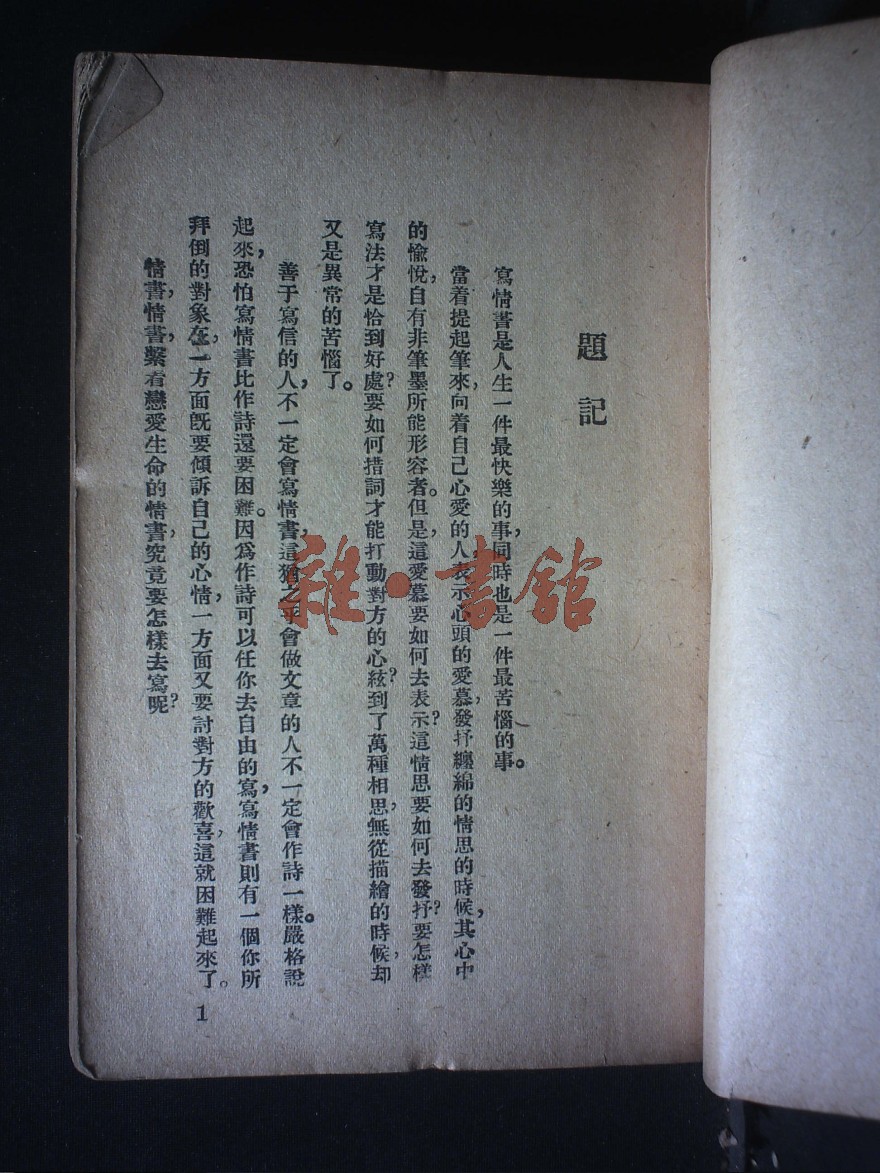 題記
寫情書是人生一件最快樂的事，同時也是一件最苦惱的事。
當着提起筆來，向着自己心愛的人表示心頭的愛慕，發抒纏綿的情思的時候，其心中
的愉悅，自有非筆墨所能形容者。但是，這愛慕要如何去表示？這情思要如何去發抒？要怎樣
寫法才是恰到好處？要如何措詞才能打動對方的心絃？到了萬種相思，無從描繪的時候，却
又是異常的苦惱了。
善于寫信的人，不一定會寫情書，這猶之乎會做文章的人不一定會作詩一樣。嚴格說
起來，恐怕寫情書比作詩還要困難。因爲作詩可以任你去自由的寫，寫情書則有一個你所
拜倒的對象在，一方面旣要傾訴自己的心情，一方面又要討對方的歡喜，這就困難起來了。
情書，情書，繫着戀愛生命的情書，究竟要怎樣去寫呢？
1
雜·書館